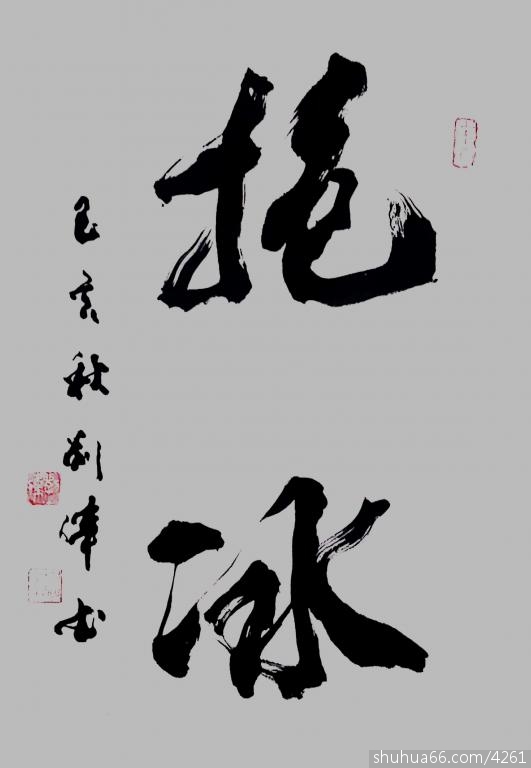 抱冰
己亥秋刘书
shuhua66.com/4261